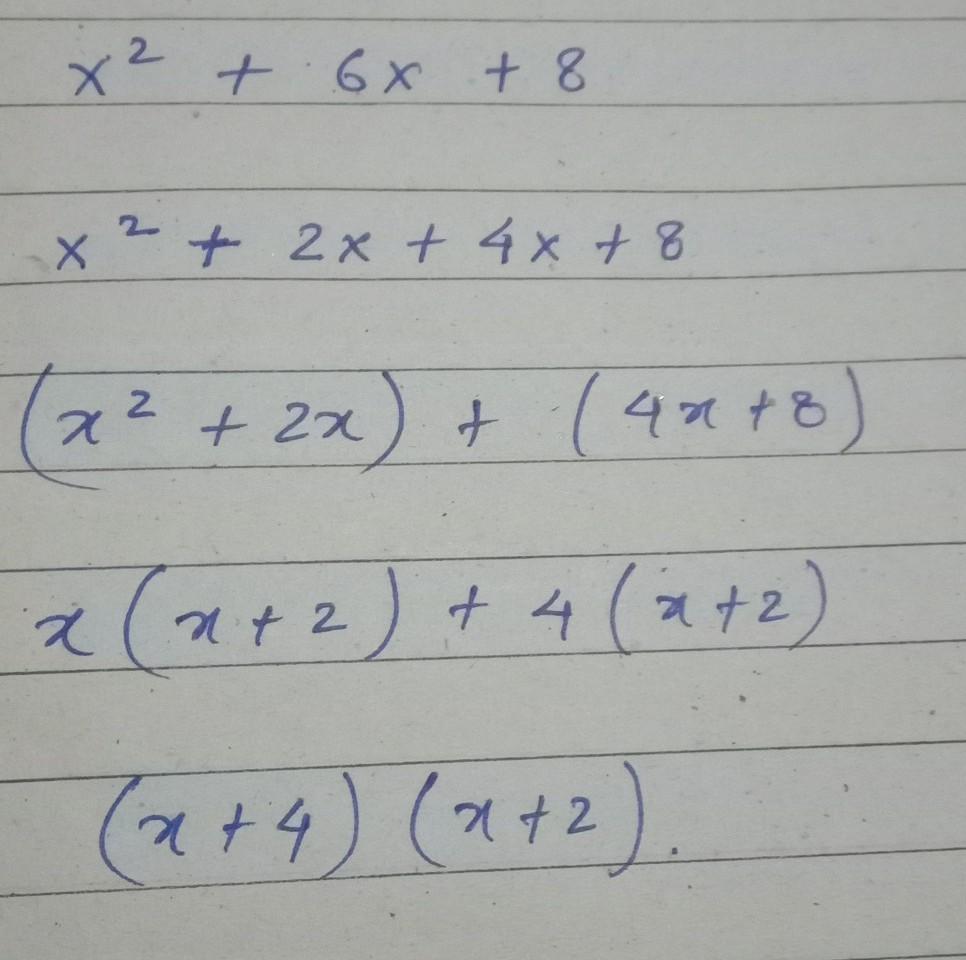 x² + 6x + 8
x² + 2x + 4x + 8
(x² + 2x) + (4x + 8)
x(x + 2) + 4(x + 2)
(x + 4) (x + 2).